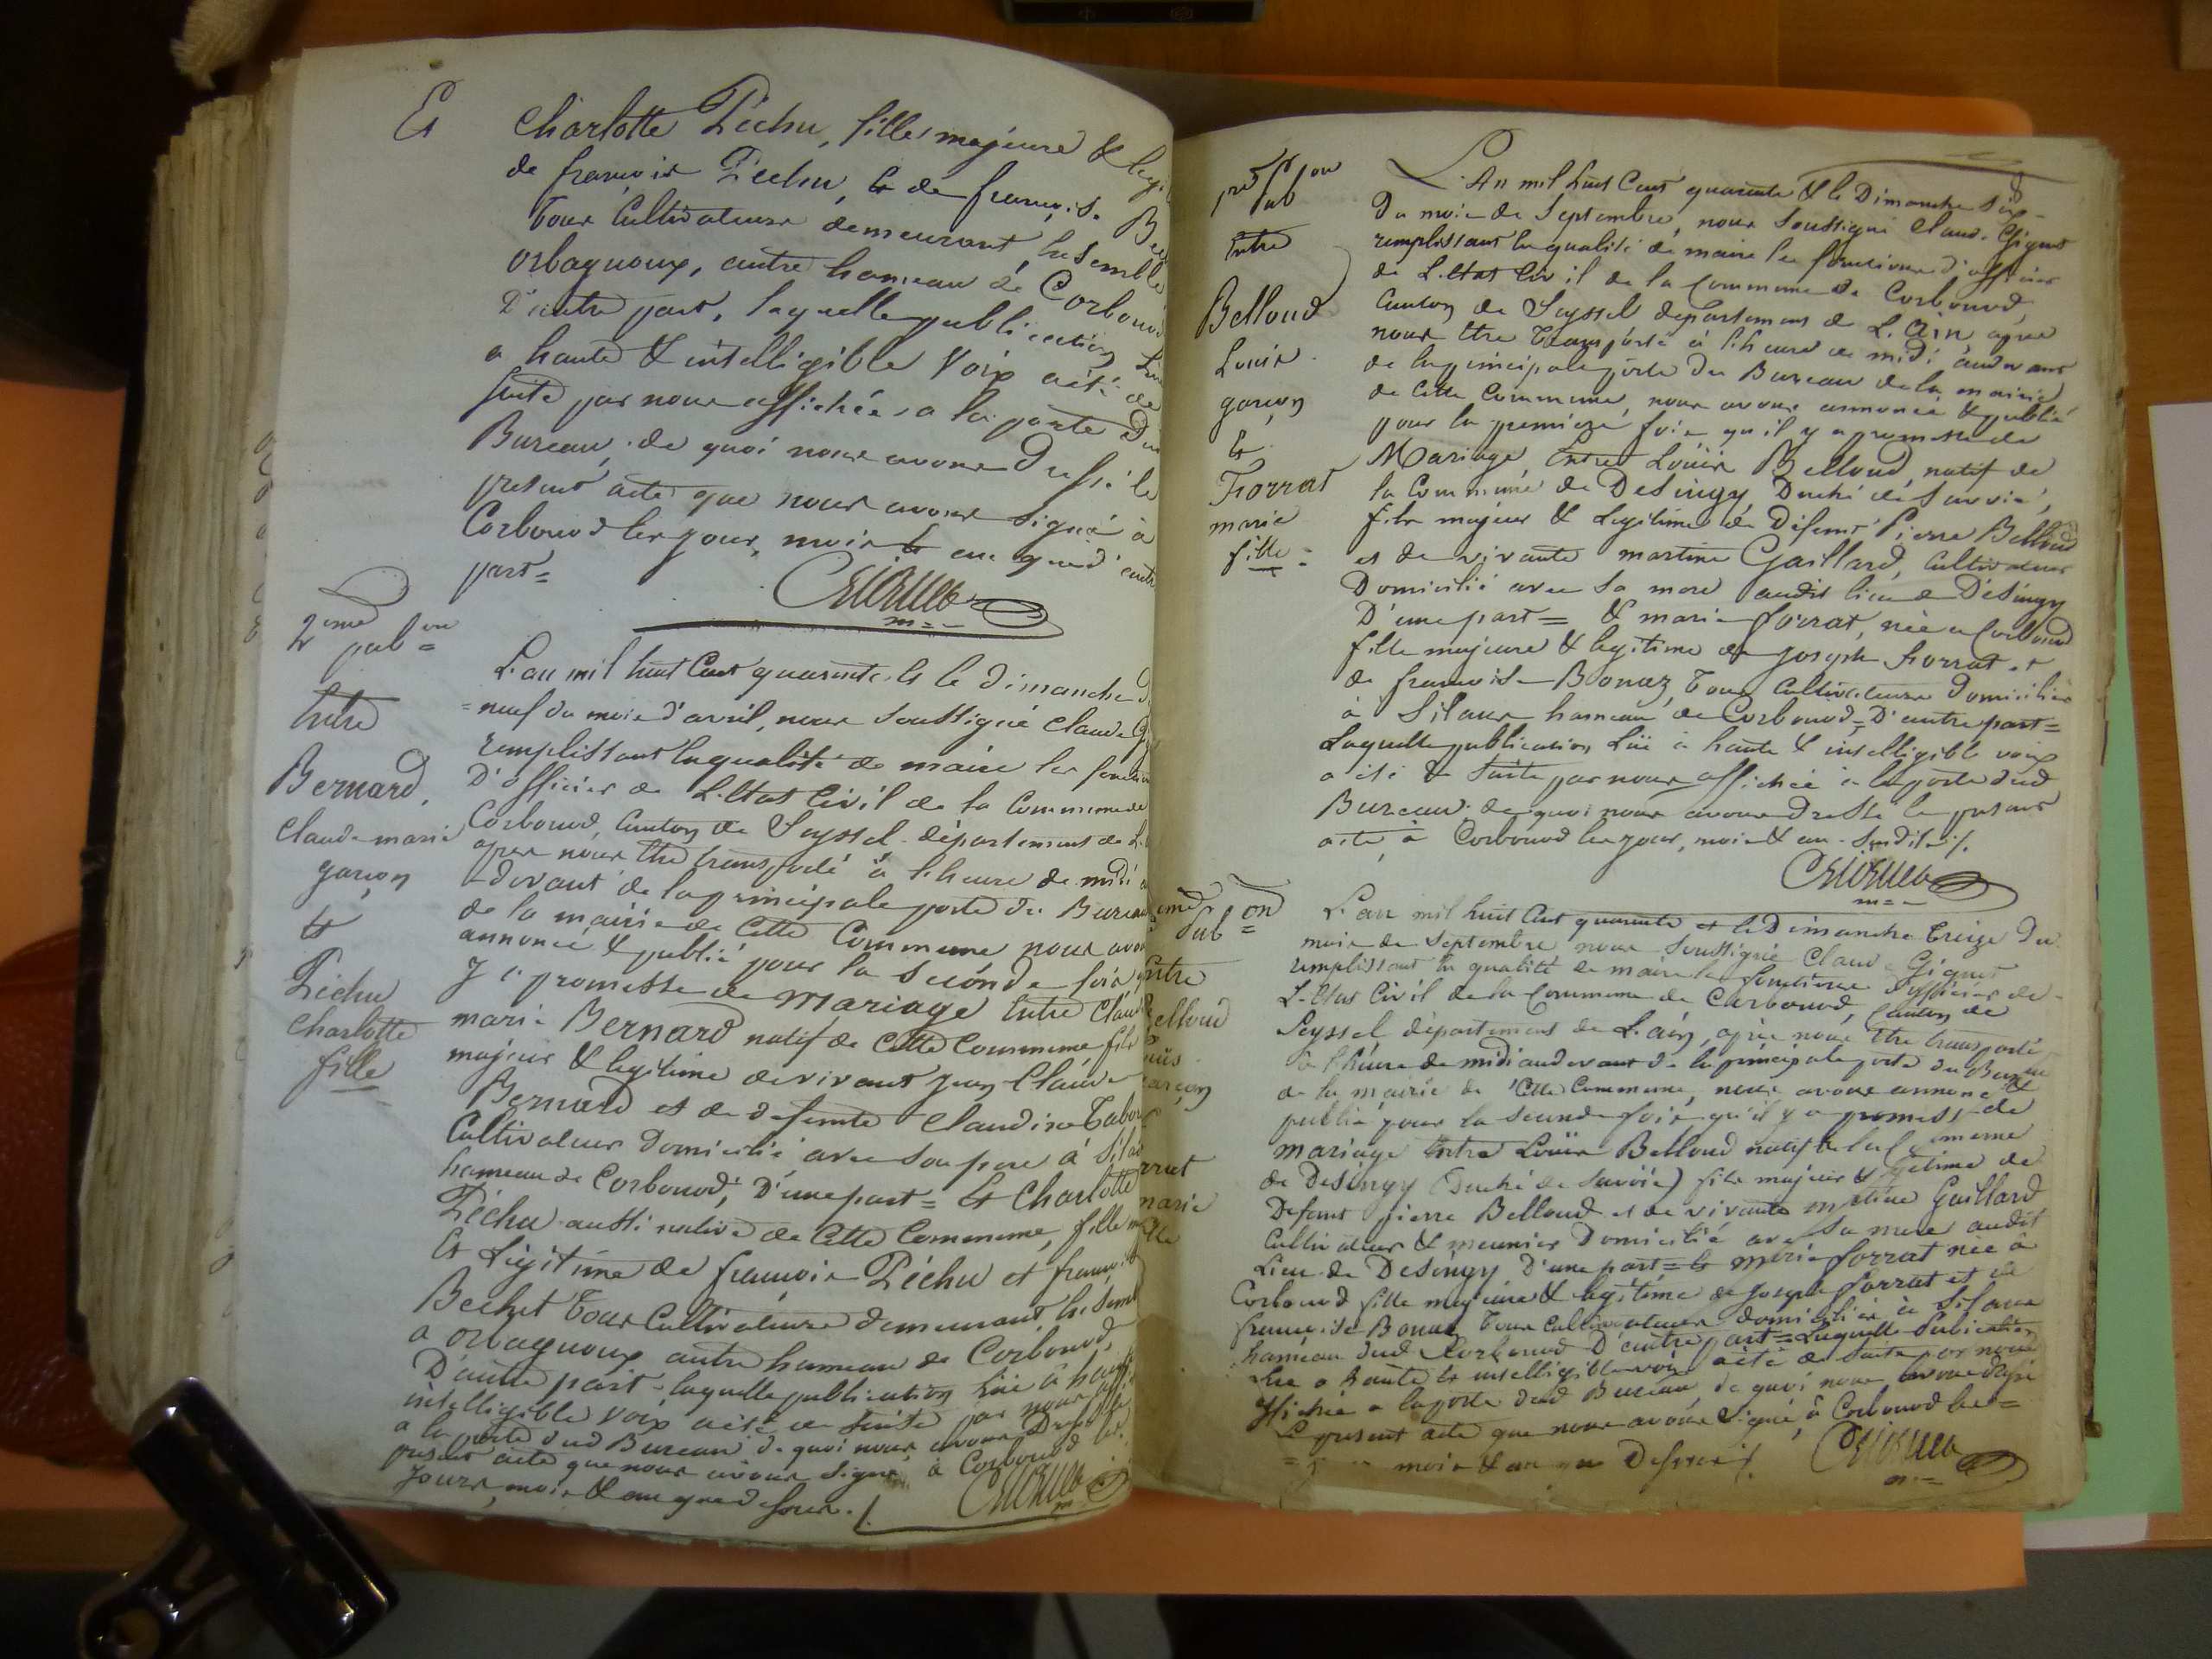 Et
Charlotte Péchu, fille majeure & legi
de françois Péchu, et de françoise Bec
tous Cultivateurs demeurant, Ensemble
Orbagnoux, autre hameau de Corbonod
D'autre part, laquelle publication Lue
a haute & intelligible Voix a été de
suite par nous affichée a la porte du
Bureau, de quoi nous avons Dressé le
présent acte que nous avons signé à
Corbonod les jour, mois et an que d'autre
part=
2eme pubon=
Entre
Bernard,
Claude marie
garçon
Et
Péchu
Charlotte
fille
L'an mil huit Cent quarante et le dimanche d
=neuf du mois d'avril, nous soussigné Claude G
remplissant la qualité de maire les fonction
D'officier de L'Etat Civil de la Commune de
Corbonod, Canton de Seyssel département de L'
après nous être transporté à l'heure de midi a
devant de la principale porte du Bureau
de la mairie de Cette Commune nous avon
annoncé & publié pour la seconde fois q
y a promesse de mariage Entre Claud
marie Bernard natif de Cette Commune, fils
majeur & legitime de vivant jean Claude
Bernard et de defunte Claudine Tabou
Cultivateur Domicilié avec son père à Sila
hameau de Corbonod, D'une part= Et Charlotte
Péchu aussi native de Cette Commune, fille m
Et Légitime de françois Péchu et françoise
Bechet tous Cultivateurs demeurant, Ensemb
a orbagnoux autre hameau de Corbonod,
D'autre part - laquelle publication Lue à haute
intelligible voix a été de suite par nous affi
a la porte dud Bureau de quoi nous avons Dressé le
présent acte que nous avons signé à Corbonod les
Jours, mois & an que dessus ./.
pre pon
pub
Entre
Belloud
Louis
garçon
&
Forrat
marie
fille=
L'An mil huit Cent quarante & le Dimanche six
Du mois de Septembre, nous soussigné Claude Gignet
remplissant la qualité de maire les fonctions d'officier
de L'Etat Civil de la Commune de Corbonod,
Canton de Seyssel département de L'Ain, après
nous être transporté à l'heure de midi au devant
de la principale porte du Bureau de la mairie
de Cette Commune, nous avons annoncé & publié
pour la première fois qu'il y a promesse de
Mariage, Entre Loüis Belloud, natif de
la Commune de Desingy, Duché de Savoie,
fils majeur & Legitime de Défunt Pierre Belloud
et de vivante martine Gaillard, Cultivateur
Domicilié avec sa mere audit lieu de Désingy
D'une part= & marie forrat, née a Corbonod
fille majeure & legitime de joseph forrat et
de françoise Bonaz, tous Cultivateurs Domiciliés
à Silans hameau de Corbonod, D'autre part=
Laquelle publication Lüe à haute & intelligible voix
a été de suite par nous affichée à la porte dud
Bureau, de quoi nous avons Dressé le présent
acte, à Corbonod les jour, mois & an-Susdits ./.
eme pon
Pub=
ntre
elloud
ouis
arçon
rrat
marie
lle
L'an mil huit Cent quarante et le Dimanche treize du
mois de Septembre nous soussigné Claude Gignet
remplissant la qualité de maire les fonctions d'officier de-
L'Etat Civil de la Commune de Corbonod, Canton de
Seyssel, département de L'ain, après nous être transporté
à l'heure de midi au devant de la principale porte du Bureau
de la mairie de Cette Commune, nous avons annoncé &
publié pour la seconde fois qu'il y a promesse de
mariage Entre Loüis Belloud natif de la Commune
de Désingy (Duché de Savoie) fils majeur & legitime de
Défunt pierre Belloud et de vivante martine Gaillard
Cultivateur & meunier Domicilié avec sa mere audit
Lieu de Désingy D'une part= et marie forrat née à
Corbonod fille majeure & legitime de Joseph forrat et de
françoise Bonaz tous Cultivateurs domiciliés à Silans
hameau dud Corbonod D'autre part= Laquelle Publication
Lue a haute et intelligible voix a été de suite par nous
affichée a la porte dud Bureau, de quoi nous avons dressé
Le present acte que nous avons signé, à Corbonod les=
mois & an que Dessus ./.